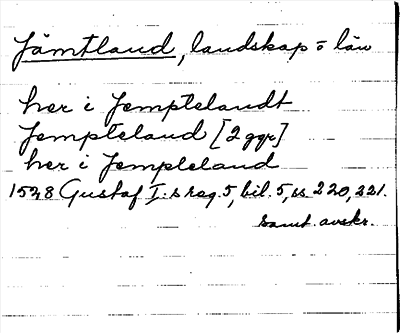 Jämtland, landskap o län
her i Jemptelandt
Jempteland [2 ggr]
her i Jempteland
1528 Gustaf I:s reg. 5, bil. 5, ss 220, 221.
samt. avskr.